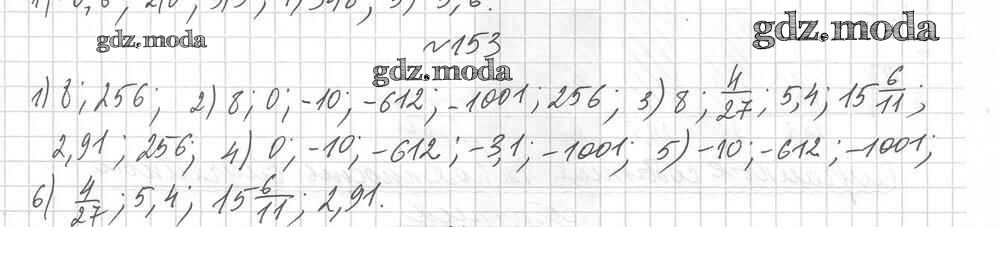 gdz.moda
gdz.moda
№153
gdz.moda
1) 8; 256; 2) 8; 0; -10; -612; -1001; 256; 3) 8; 4/27; 5,4; 15 6/11;
2,91; 256; 4) 0; -10; -612; -3,1; -1001; 5) -10; -612; -1001;
6) 4/27; 5,4; 15 6/11; 2,91.